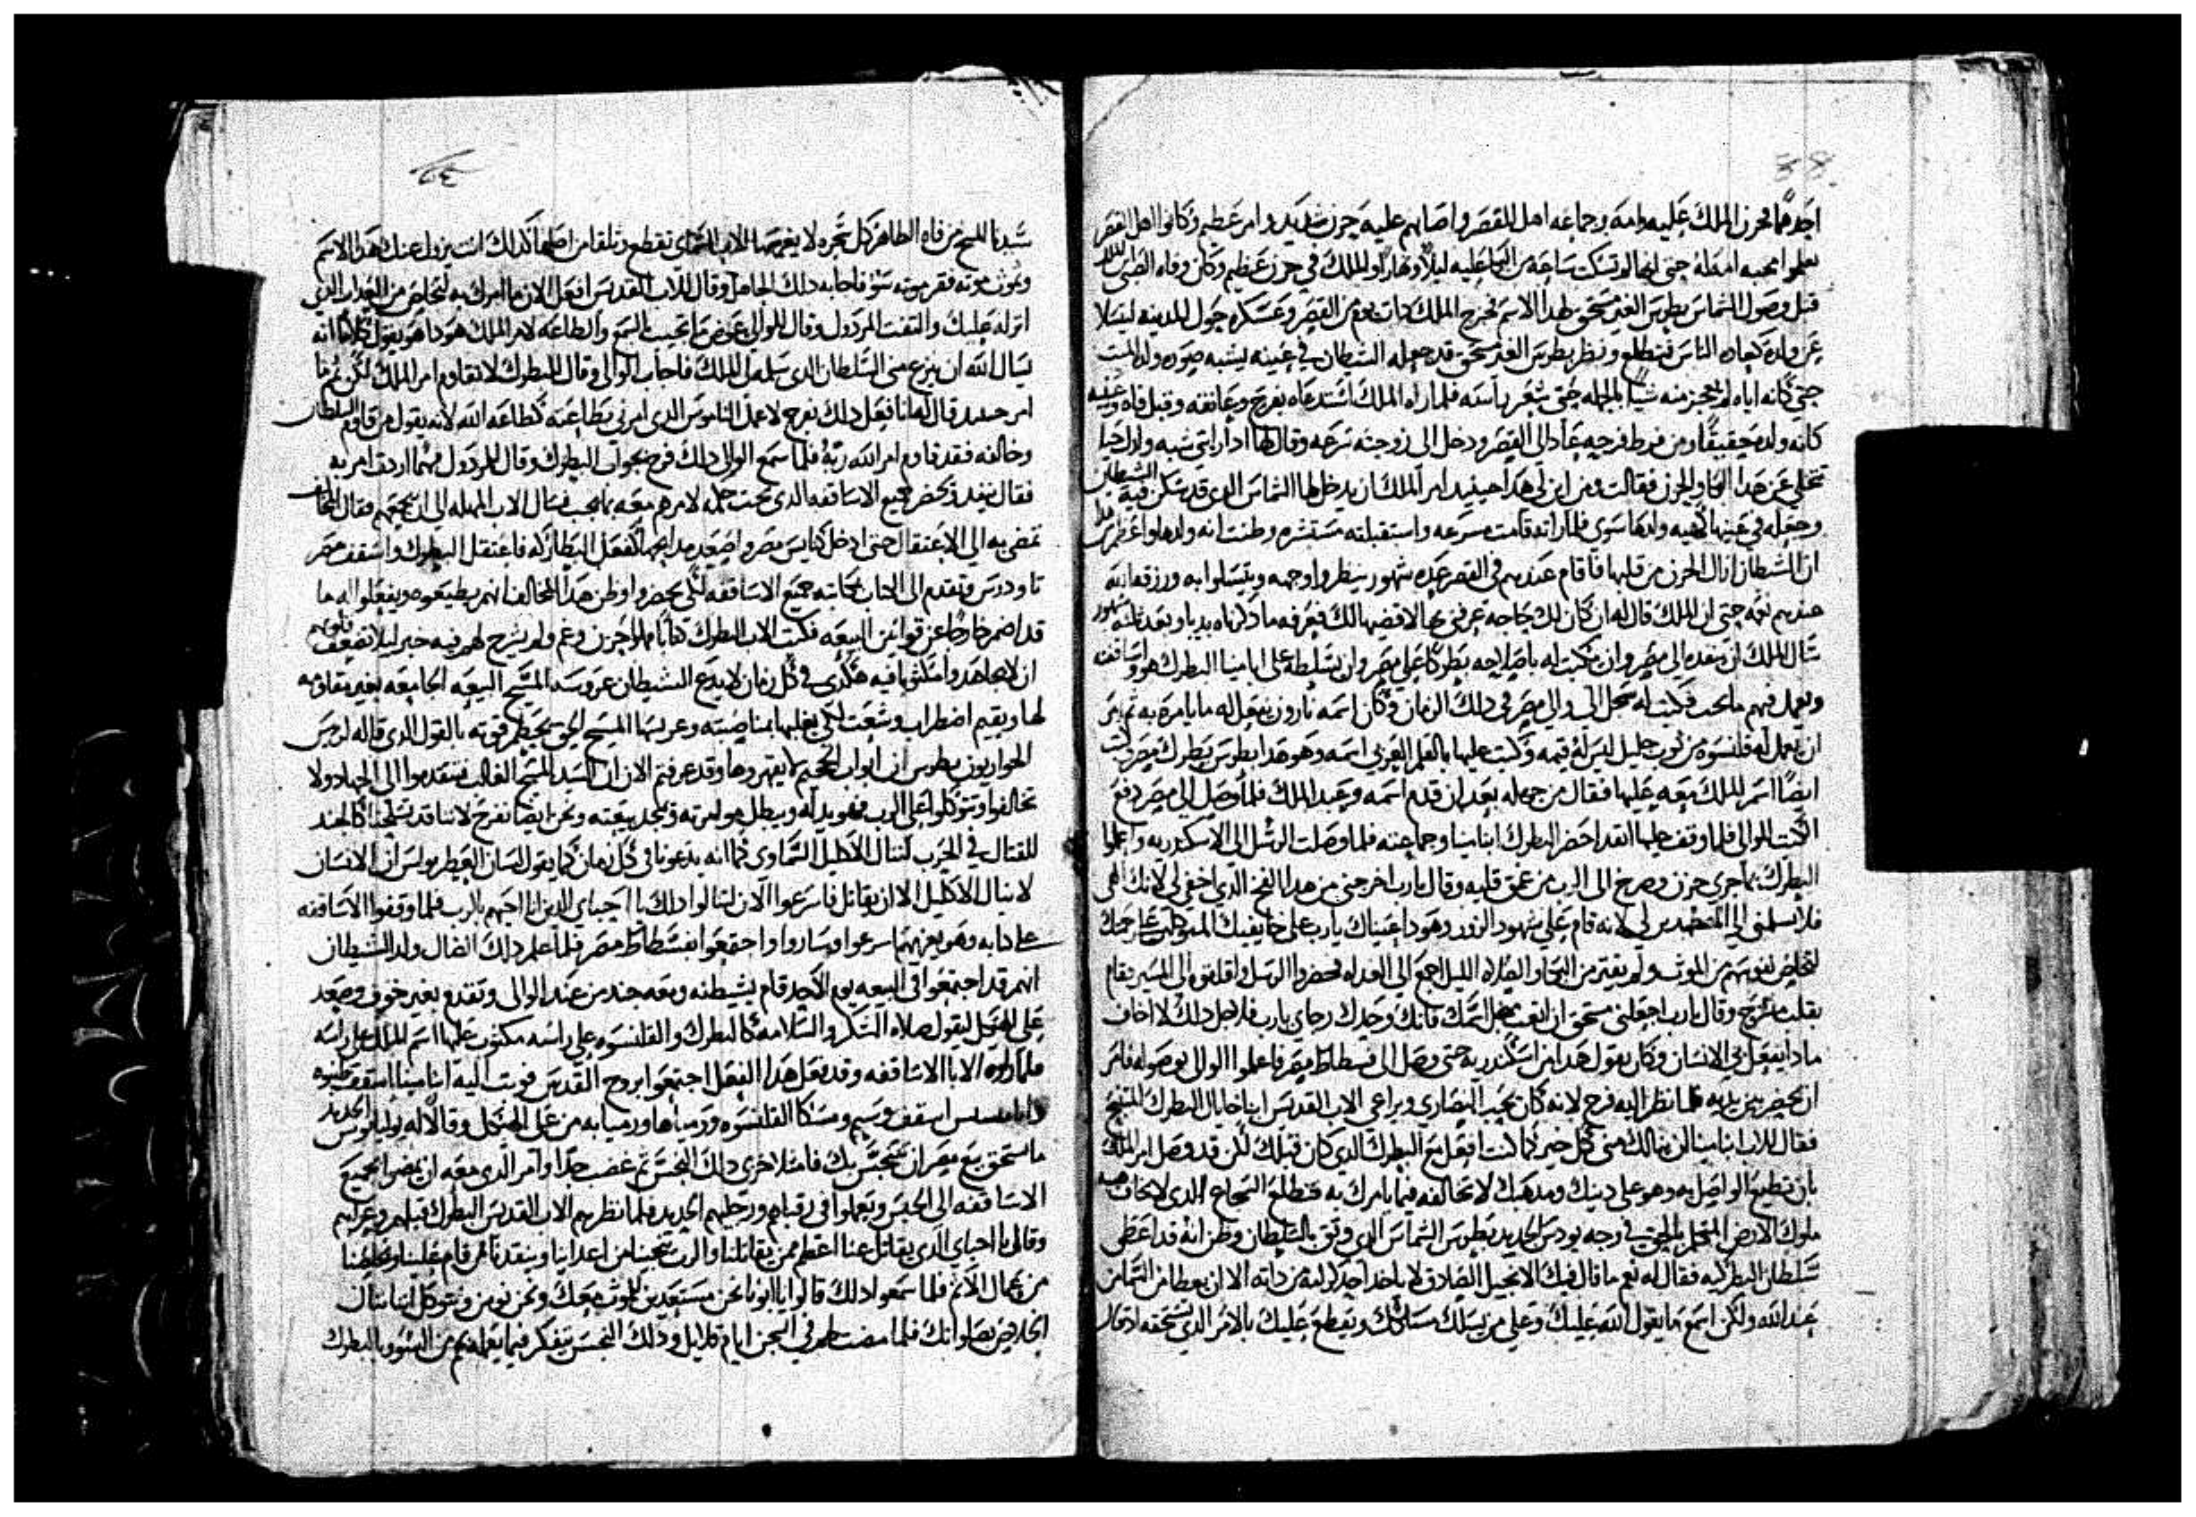 احدهما فحزن الملك عليه وامه وجماعه اهل القصر واصابهم عليه حزن شديد وامر عظيم وكانوا اهل القصر
بعلموا محبه امه له حتى انها لم تسكت ساعه من البكا عليه ليلا ونهارا والملك في حزن عظيم وكان وفاه الصبي
قبل وصول الشماس بطرس الغير مستحق لهذا الاسم فخرج الملك ذات يوم من القصر وعسكره حول المدينه ليتسلا
عن ولده كعاده الناس فتطلع ونظر بطرس الغير مستحق قد جعله الشيطان في عينيه يشبه صوره ولده الميت
حتى كانه اياه لم يعجز منه شيا بالجمله حتى شعر راسه فلما راه الملك استدعاه بفرح وعانقه وقبل فاه وعينيه
كانه ولده حقيقا ومن فرط فرحه عاد الى القصر ودخل الى زوجته بسرعه وقال لها ادا رايتي شبه ولدك حيا
تتخلي عن هدا البكا والحزن فقالت ومن اين لي هدا حينيد امر الملك ان يدخل لها الشماس الدي قد سكن فيه الشيطان
وجعله في عينيها كهيه ولدها سوى فلما راته قامت مسرعه واستقبلته مستبشره وظنت انه ولدها
ان الشيطان ازال الحزن من قلبها فاقام عندهم في القصر عده شهور ينظروا وجهه ويتسلوا به ورزقه الله
عندهم نعمه حتى ان الملك قال له ان كان لك حاجه عرفني بها لاقضيها لك فعرفه ما دكرناه بديا وبعد ثلثه شهور
سال الملك ان ينفده الى مصر وان يكتب له باصلاحه بطركا على مصر وان يسلطه على ابا مينا البطرك هو واساقفته
ويعمل فيهم ما يحب فكتب له سجل الى والي مصر في دلك الزمان وكان اسمه نارون يفعل له ما يامره به ثم امر
ان يعمل له قلنسوه من ثوب جليل ليس له قيمه وكتب عليها بالقلم العربي اسمه وهو هدا بطرس بطرك مصر
ايضا اسم الملك معه عليها فقال من جهله بعد ان قدم اسمه وعبد الملك فلما وصل الى مصر دفع
الكتب للوالي فلما وقف عليها انفد احضر البطرك ابا مينا وجماعته فلما وصلت الرسل الى الاسكندريه واعلموا
البطرك بما جرى حزن وصرخ الى الرب من عمق قلبه وقال يا رب اخرجني من هدا الفخ الدي اخفي لي لانك الهي
فلا تسلمني الى المضطهدين لي لانه قام علي شهود الزور وهودا عيناك يا رب على خايفيك المتوكلين على رحمتك
لتخلص نفوسهم من الموت ولم يفتر من البكا والصلاه الليل اجمع الى الغداه فحضروا الرسل واقلقوه الى المسير فقام
بقلب متوجع وقال يا رب اجعلني مستحق ان اتعب من اجل اسمك فانك وحدك رجاي يا رب فلاجل دلك لا اخاف
مادا يفعل بي الانسان وكان يقول هدا من اسكندريه حتى وصل الى فسطاط مصر فاعلموا الوالي بوصوله فامر
ان يحضر بين يديه فلما نظر اليه فرح لانه كان يحب النصارى ويراعي الاب القديس ابا خايال البطرك المتنيح
فقال للاب ابا مينا لن ينالك مني كل خير كما كنت افعل مع البطرك الدي كان قبلك لكن قد وصل امر الملك
بان تطيع الواصل به وهو على دينك ومدهبك لا تخالفه فيما يامرك به فتطلع الشجاع الدي لا يخاف
ملوك الارض المتكل بالحق في وجه يودس الجديد بطرس الشماس الدي وثق بالسلطان وظن انه قد اعطي
سلطان البطركيه فقال له نعم ما قال فيك الانجيل الصادق لا ياخد احد كرامه من داته الا ان يعطا من السما من
عند الله ولكن اسمع ما يقول الله عليك وعلى من يسلك مسالكك ويقطع عليك بالامر الدي تستحقه اد قال
سيدنا المسيح من فاه الطاهر كل شجره لا يغرسها الاب السماي تقطع وتلقا من اصلها كدلك انت يزول عنك هدا الاسم
وتموت موته فقر موته سو فاجابه دلك الجاهل وقال للاب القديس افعل الان ما امرك به لتخلص من العداب الدي
انزله عليك والتفت المردول وقال للوالي عوض ما تجيب بالسمع والطاعه لامر الملك هودا هو يقول كلاما انه
يسال الله ان ينزع مني السلطان الدي سلمه لي الملك فاجاب الوالي وقال للبطرك لا تقاوم امر الملك لكن مهما
امر حينيد قال له انا افعل دلك بفرح لاعمل الناموس الدي امرني بطاعته كطاعه الله لانه يقول من قاوم السلطان
وخالفه فقد قاوم امر الله ربه فلما سمع الوالي دلك فرح بجواب البطرك وقال للمردول مهما اردت امر به
فقال ينفد وتحضر جميع الاساقفه الدي تحت حكمه لامرهم معه بما يجب فسال الاب المهله الى ان يجمعهم فقال المخالف
تمضي به الى الاعتقال حتى ادخل كنايس مصر واصعد مدابحها كفعل البطاركه فاعتقل البطرك واسقف مصر
تاودرس وتقدم الى الاب بكتابه جميع الاساقفه لكي يحضروا وظن هدا المخالف انهم يطيعوه ويفعلوا له ما
قد اضمر خارجا عن قوانين البيعه فكتب الاب البطرك كتابا مملوا حزن وغم ولم يشرح لهم فيه خبر ليلا تضعف قلوبهم
ان لا تجاهدوا مكتوبا فيه هكدى في كل زمان لا يدع الشيطان عروس السيد المسيح البيعه الجامعه بغير مقاومه
لها ويقيم اضطراب وشعث لكي يغلبها بمناصبته وعريسها المسيح الحق يحطم قوته بالقول الدي قاله لريس
الحواريون بطرس ان ابواب الجحيم لا يقهروها وقد عرفتم الان ان السيد المسيح الغالب فتقدموا الى الجهاد ولا
تخالفوا وتوكلوا على الرب فهو يدله ويبطل موامرته ويمجد بيعته ونحن ايضا نفرح لاننا قد تسلحنا كالجند
للقتال في الحرب لننال الاكليل السماوي كما انه يدعونا في كل زمان كما يقول لسان العطر بولس ان الانسان
لا ينال الاكليل الا ان يقاتل فاسرعوا الان لتنالوا دلك يا احباي الدين انا احبهم بالرب فلما وقفوا الاساقفه
على كتابه وهو يعزيهم اسرعوا وساروا واجتمعوا بفسطاط مصر فلما علم دلك الضال ولد الشيطان
انهم قد اجتمعوا في البيعه يوم الاحد قام بشيطنه ومعه جند من عند الوالي وتقدم بغير خوف وصعد
على الهيكل ليقول صلاه الشكر والسلامه كالبطرك والقلنسوه على راسه مكتوب عليها اسم الملك على راسه
فلما راوه الابا الاساقفه وقد فعل هدا الفعل اجتمعوا بروح القدس فوثب اليه ابا مينا اسقف طنبوه
اسقف وسيم ومسكا القلنسوه ورمياها ورميا به من على الهيكل وقالا له يوليانوس الجديد
ما تستحق بيع مصر ان تتنجس بك فامتلا خزي دلك النجس ثم غضب جدا وامر الدي معه ان يمضوا بجميع
الاساقفه الى الحبس ويعملوا في رقابهم ورجليهم الحديد فلما نظرهم الاب القديس البطرك قبلهم وعزاهم
وقال يا احباي الدي يقاتل عنا اعظم ممن يقاتلنا والرب ينجينا من اعداينا وينقدنا ممن قام علينا ويخلصنا
من عمال الاثم فلما سمعوا دلك قالوا يا ابونا نحن مستعدين للموت معك ونحن نومن ونتوكل اننا ننال
الخلاص بصلواتك فلما مضت لهم في السجن ايام قلايل ودلك النجس يتفكر فيما يعمله بهم من السوو بالبطرك